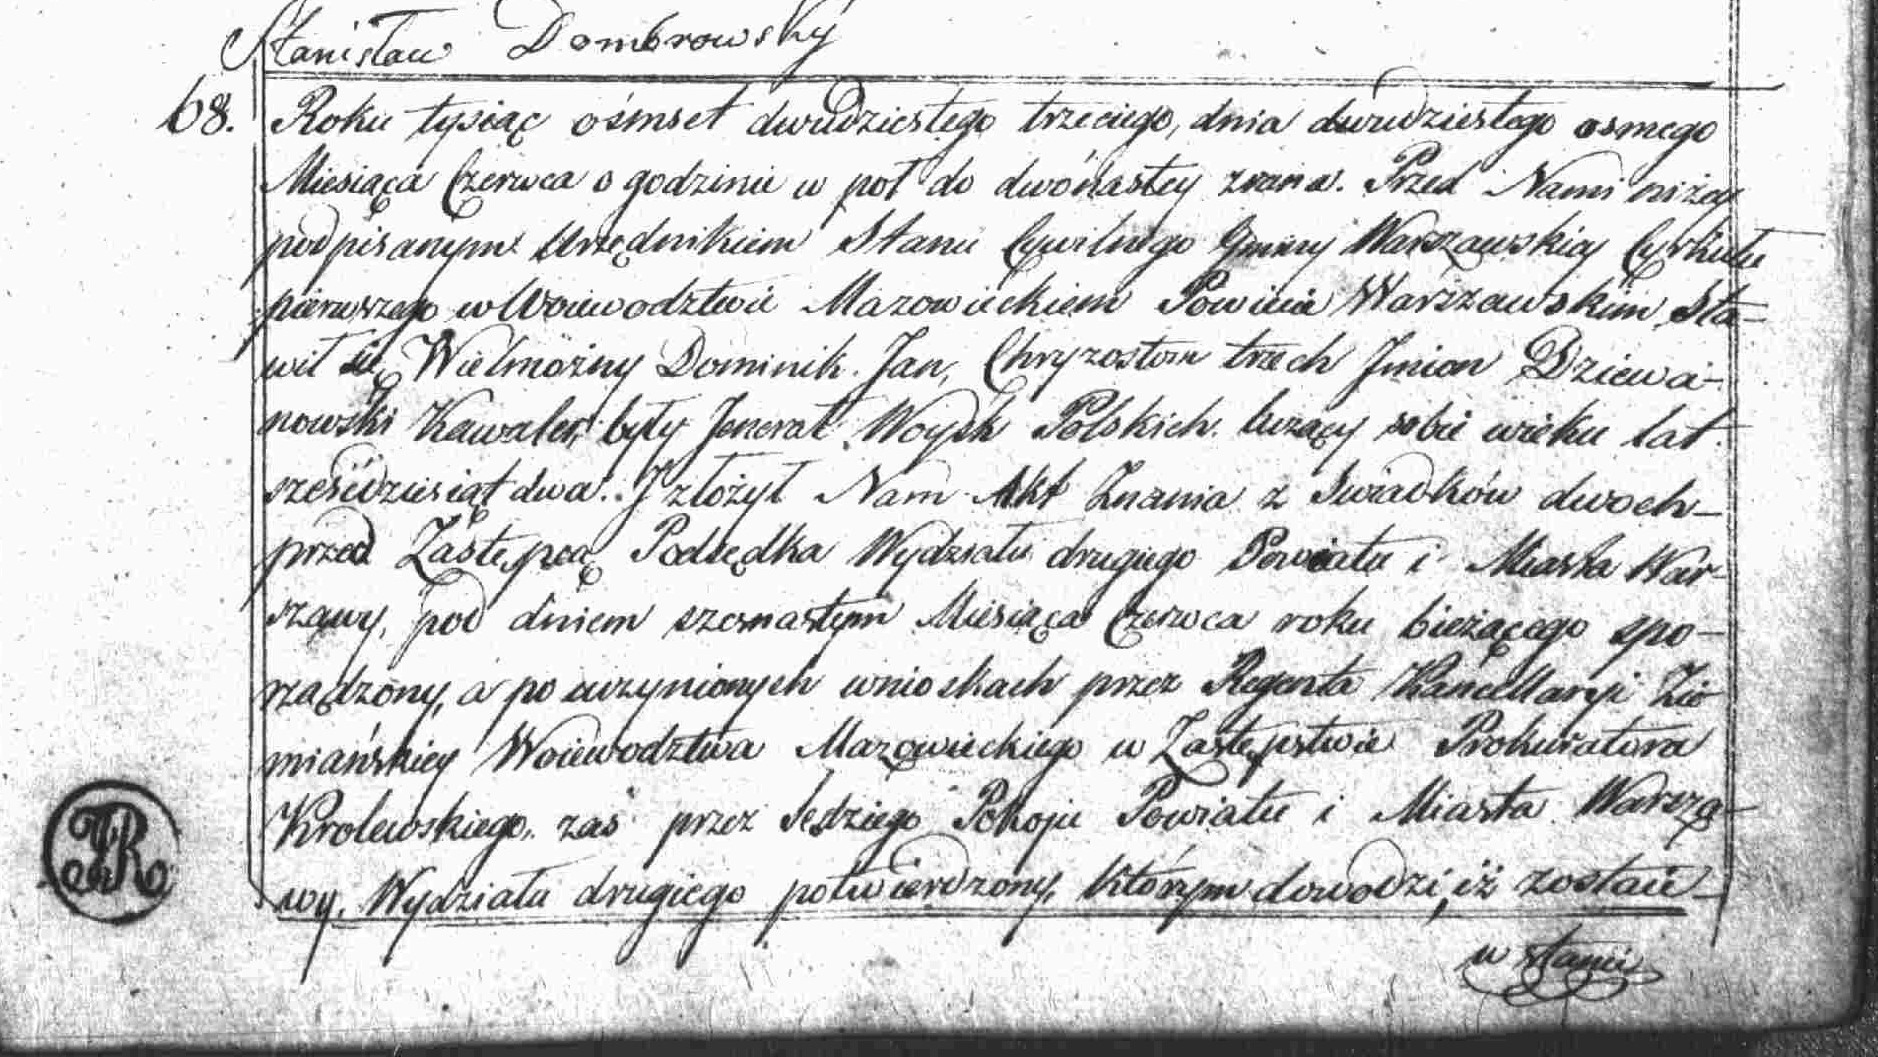 Stanisław Dombrowsky
68. Roku tysiąc ośmset dwudziestego trzeciego, dnia dwudziestego osmego
Miesiąca Czerwca o godzinie w poł do dwónastey zrana. Przed Nami niżey
podpisanym Urzędnikiem Stanu Cywilnego Gminy Warszawskiey Cyrkułu
pierwszego w Woiewodztwie Mazowieckiem Powiecie Warszawskim Sta-
wił się Wielmożny Dominik. Jan, Chryzostom trzech Jmion Dziewa-
nowski Kawaler, były Jenerał Woysk Polskich. liczący sobie wieku lat
sześćdziesiąt dwa. J złożył Nam Akt Znania z Swiadków dwoch-
przed Zastępcą Podsędka Wydziału drugiego Powiatu i Miasta War-
szawy, pod dniem szesnastym Miesiąca Czerwca roku bieżącego spo-
rządzony, a po uczynionych wnioskach przez Regenta Kancellaryi Zie
miańskiey Woiewodztwa Mazowieckiego w Zastępstwie Prokuratora
Krolewskiego, zas przez Sędziego Pokoju Powiatu i Miasta Warsza-
wy, Wydziału drugiego potwierdzony, którym dowodzi, iż zostaie-
w stanie
JR